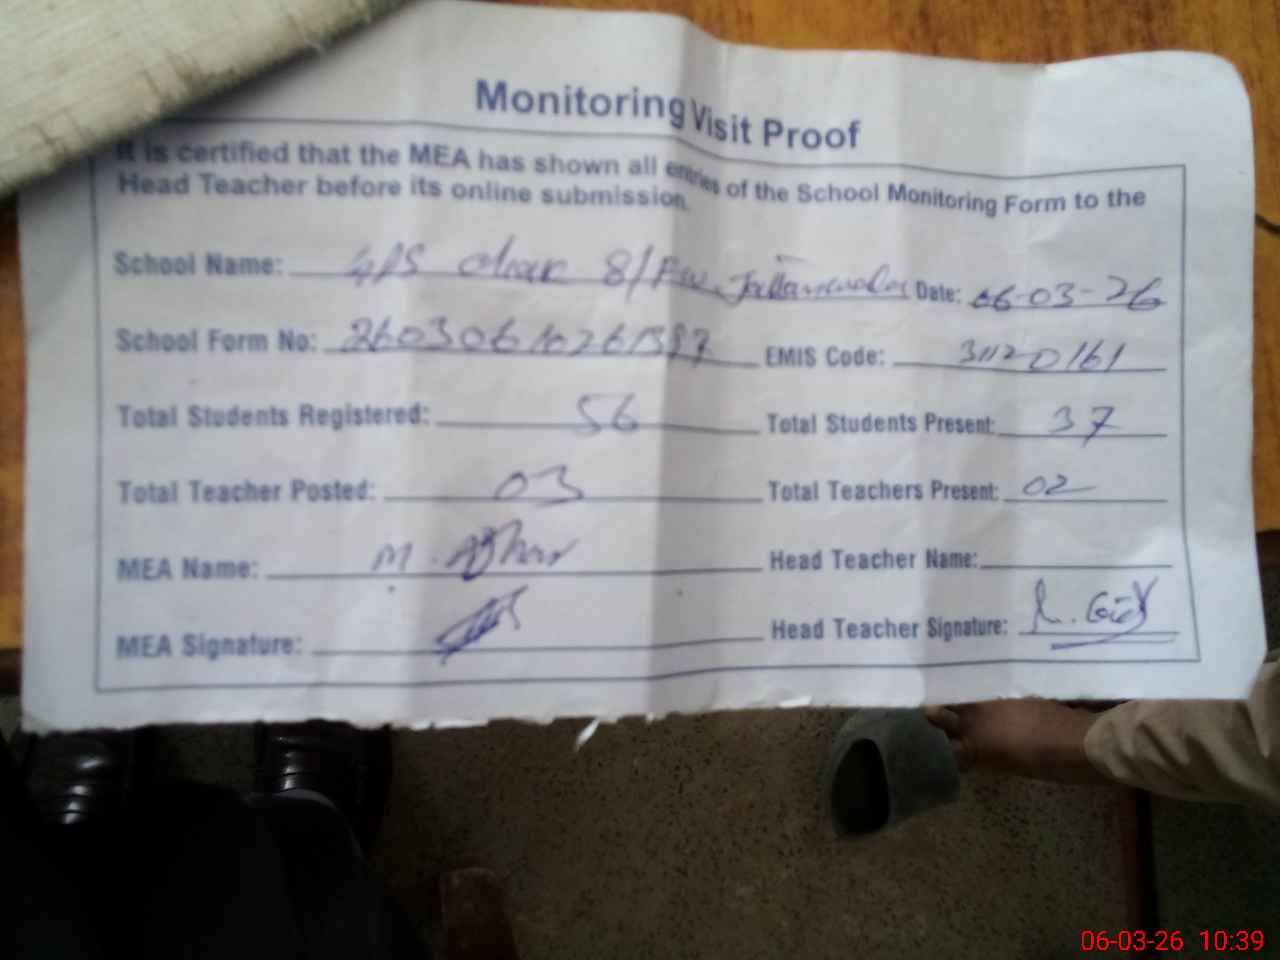 Monitoring Visit Proof
It is certified that the MEA has shown all entries of the School Monitoring Form to the
Head Teacher before its online submission.
School Name: GPS 8/ Date: 06-03-26
School Form No: EMIS Code: 31120161
Total Students Registered: 56 Total Students Present: 37
Total Teacher Posted: 03 Total Teachers Present: 02
MEA Name: M. Azhar Head Teacher Name:
MEA Signature: Head Teacher Signature:
06-03-26 10:39